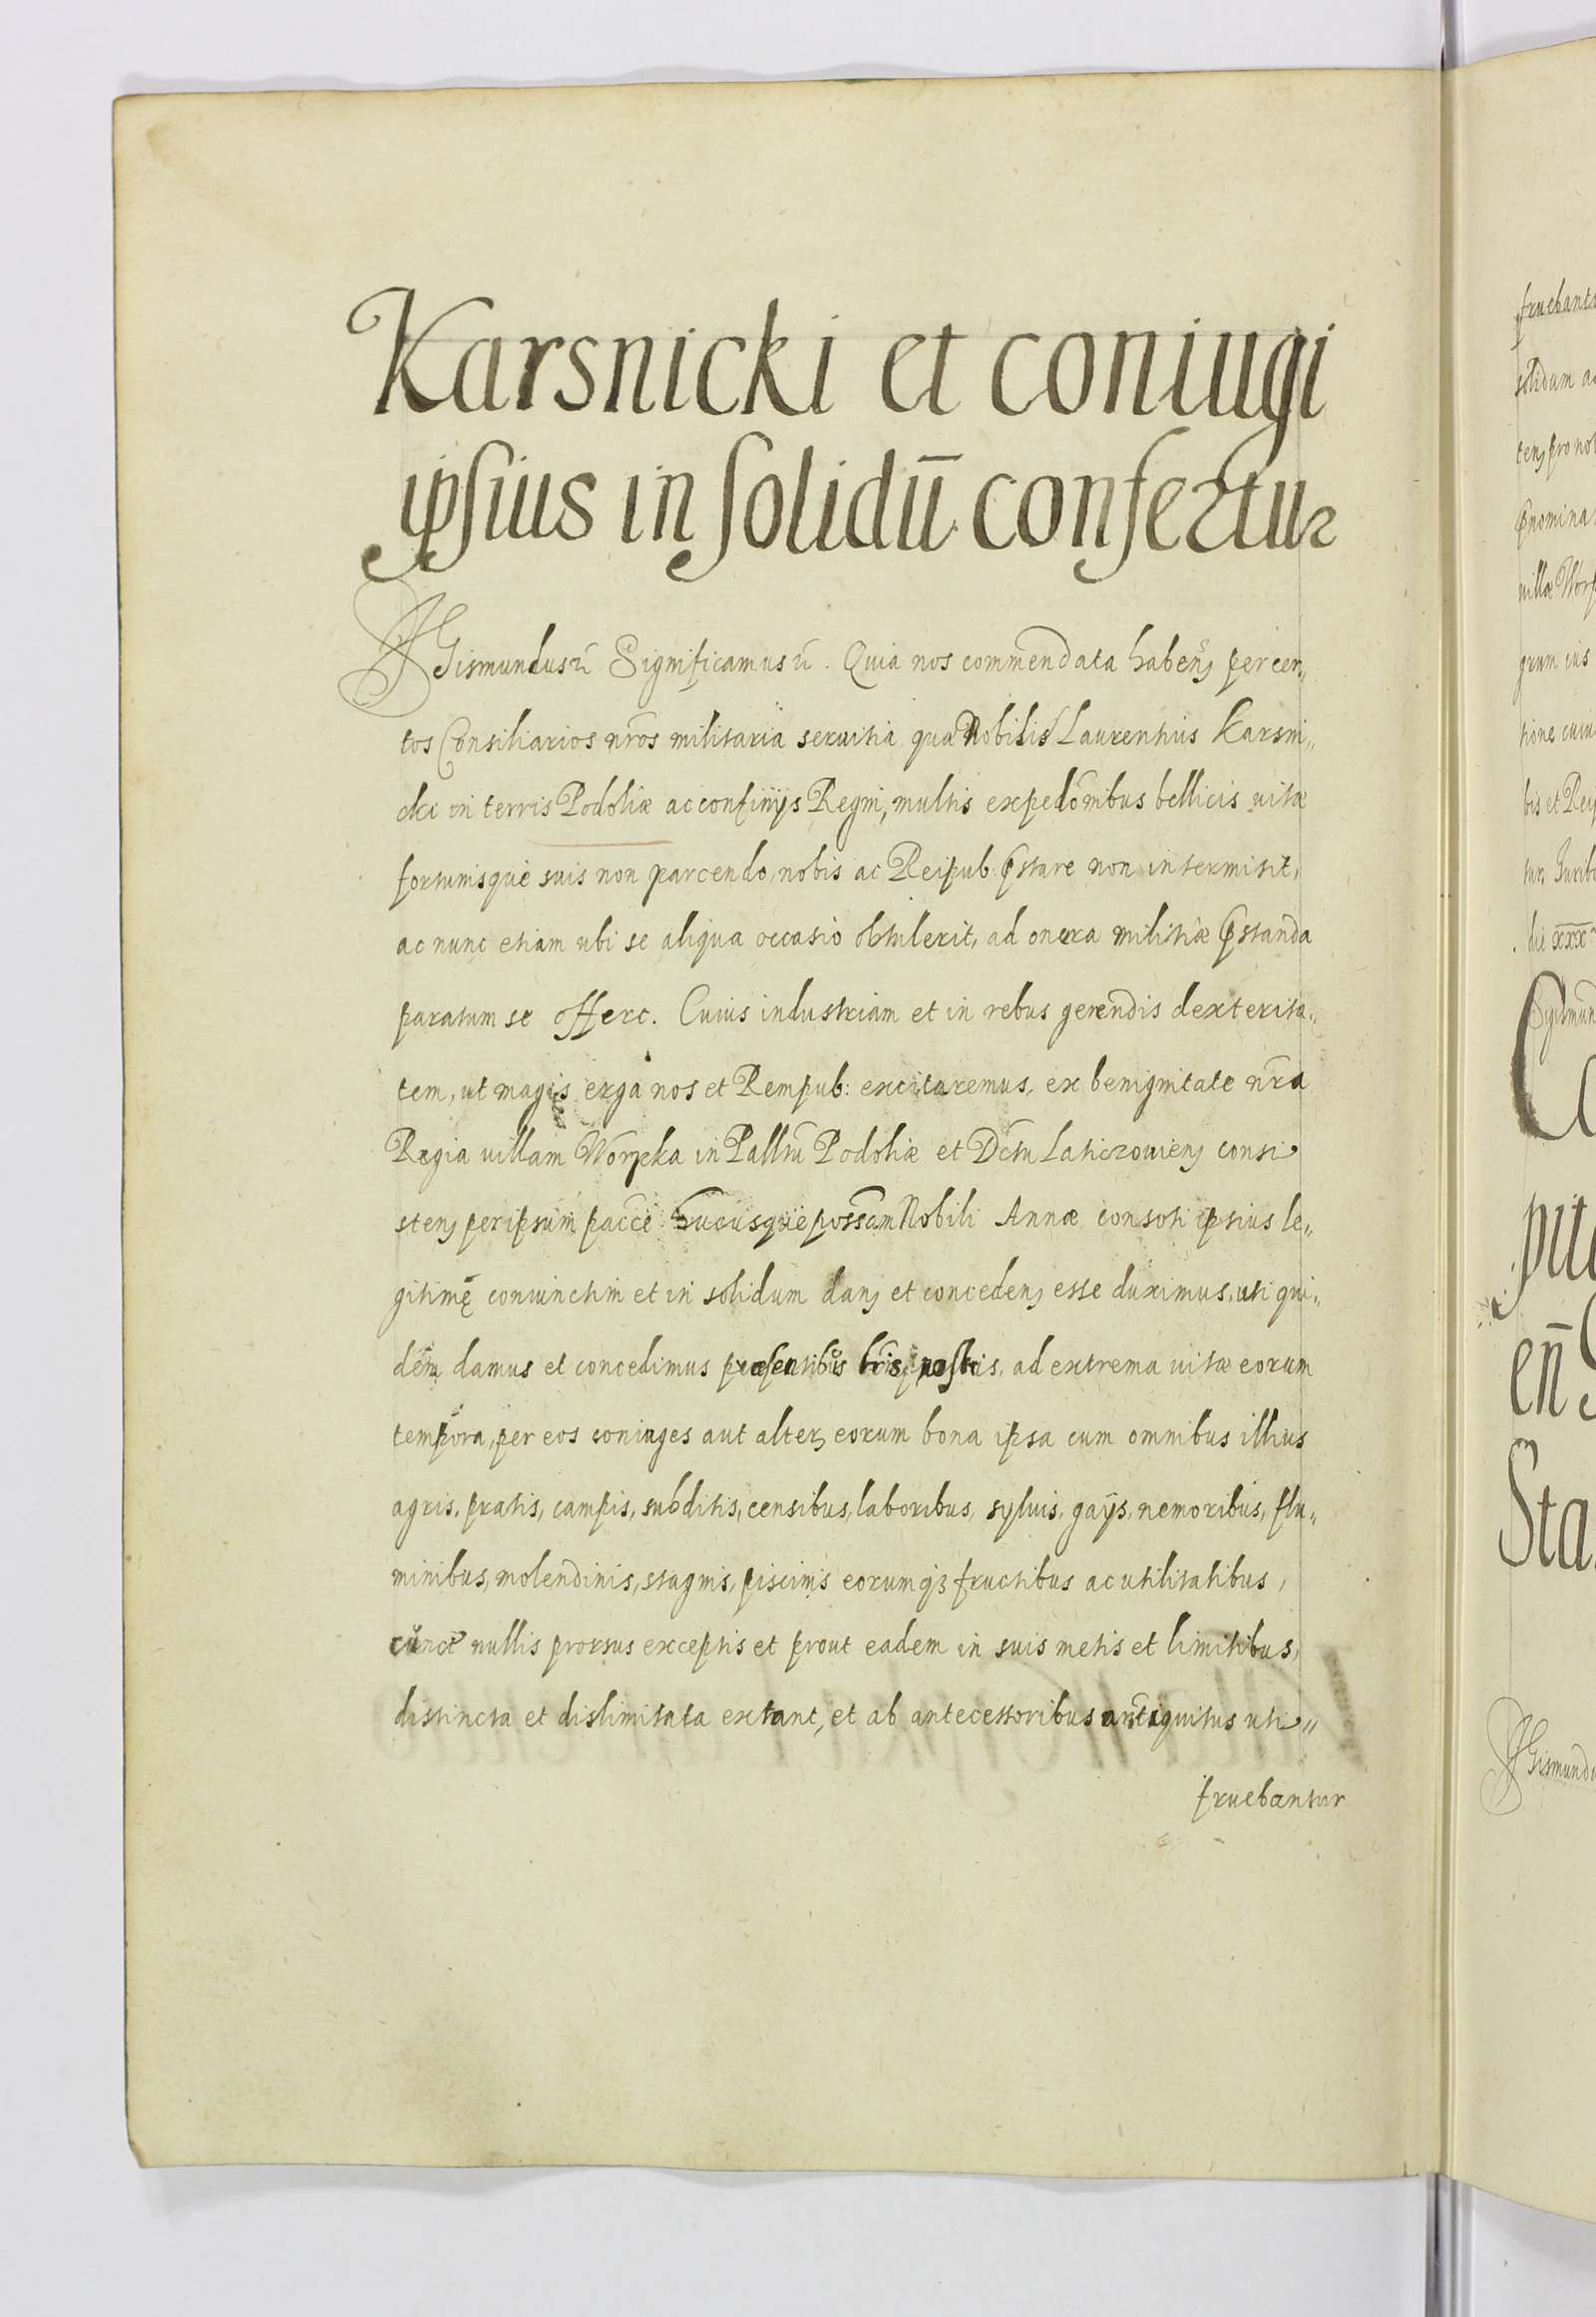 Karsnicki et coniugi
ipsius in solidū confertur
SGismundus rc̄ Significamus rc̄. Quia nos commendata haben̄ per cer„
tos Consiliarios nr̄os militaria seruitia, qua Nobilis Laurentius Karsni„
cki in terris Podoliæ ac confinijs Regni, multis expedōnibus bellicis uitæ
fortunisque suis non parcendo, nobis ac Reipub. p̄stare non intermisit,
ac nunc etiam ubi se aliqua occasio obtulerit, ad onera militiæ p̄standa
paratum se offert. Cuius industriam et in rebus gerendis dexterita„
tem, ut magis erga nos et Rempub: excitaremus, ex benignitate nr̄a
Regia uillam Worpka in Pallt̄u Podoliæ et Dc̄tu Laticzouien̄ consi
sten̄ per ipsum pacc̄e hucusque poss̄am Nobili Annæ consorti ipsius le„
gitimę coniunctim et in solidum dan̄ et conceden̄ esse duximus, uti qui„
dem damus et concedimus præsentibus l̄ris nostris, ad extrema uitæ eorum
tempora, per eos coniuges aut alter̄ eorum bona ipsa cum omnibus illius
agris, pratis, campis, subditis, censibus, laboribus, syluis, gaijs, nemoribus, flu„
minibus, molendinis, stagnis, piscinis eorumq₃ fructibus ac utilitatibus,
cunct̄ nullis prorsus exceptis et prout eadem in suis metis et limitibus,
distincta et dislimitata extant, et ab antecessoribus antiquitus uti„
fruebantur